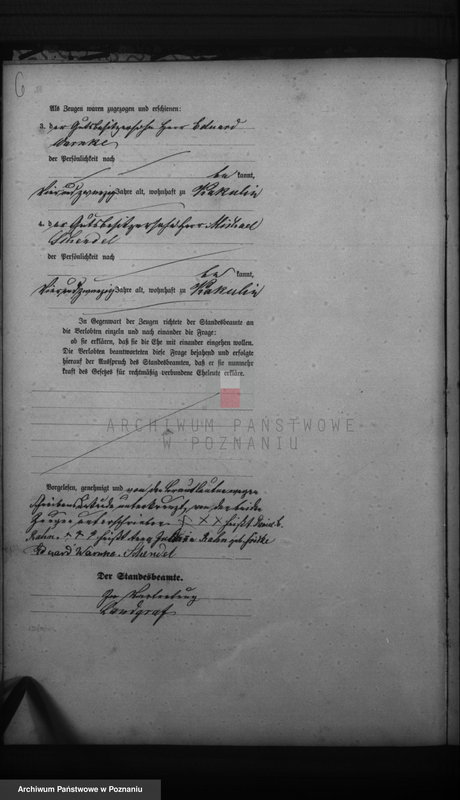 6
Als Zeugen waren zugezogen und erschienen:
3. der Gutsbesitzersohn Herr Eduard
Warnke
der Persönlichkeit nach
be kannt,
vierundzwanzig Jahre alt, wohnhaft zu Kakulin
4. der Gutsbesitzersohn Herr Michael
Schendel
der Persönlichkeit nach
be kannt,
vierundzwanzig Jahre alt, wohnhaft zu Kakulin
In Gegenwart der Zeugen richtete der Standesbeamte an
die Verlobten einzeln und nach einander die Frage:
ob sie erklären, daß sie die Ehe mit einander eingehen wollen.
Die Verlobten beantworteten diese Frage bejahend und erfolgte
hierauf der Ausspruch des Standesbeamten, daß er sie nunmehr
kraft des Gesetzes für rechtmäßig verbundene Eheleute erkläre.
ARCHIWUM PAŃSTWOWE
W POZNANIU
Vorgelesen, genehmigt und von den Brautleuten wegen
Schreibensunkunde unterkreuzt, von den beiden
Zeugen unterschrieben + x x x heißt
Rahn. + + + heißt Rahn geb.
Eduard Warnke. Schendel
Der Standesbeamte.
In Vertretung
Landgraf
Archiwum Państwowe w Poznaniu